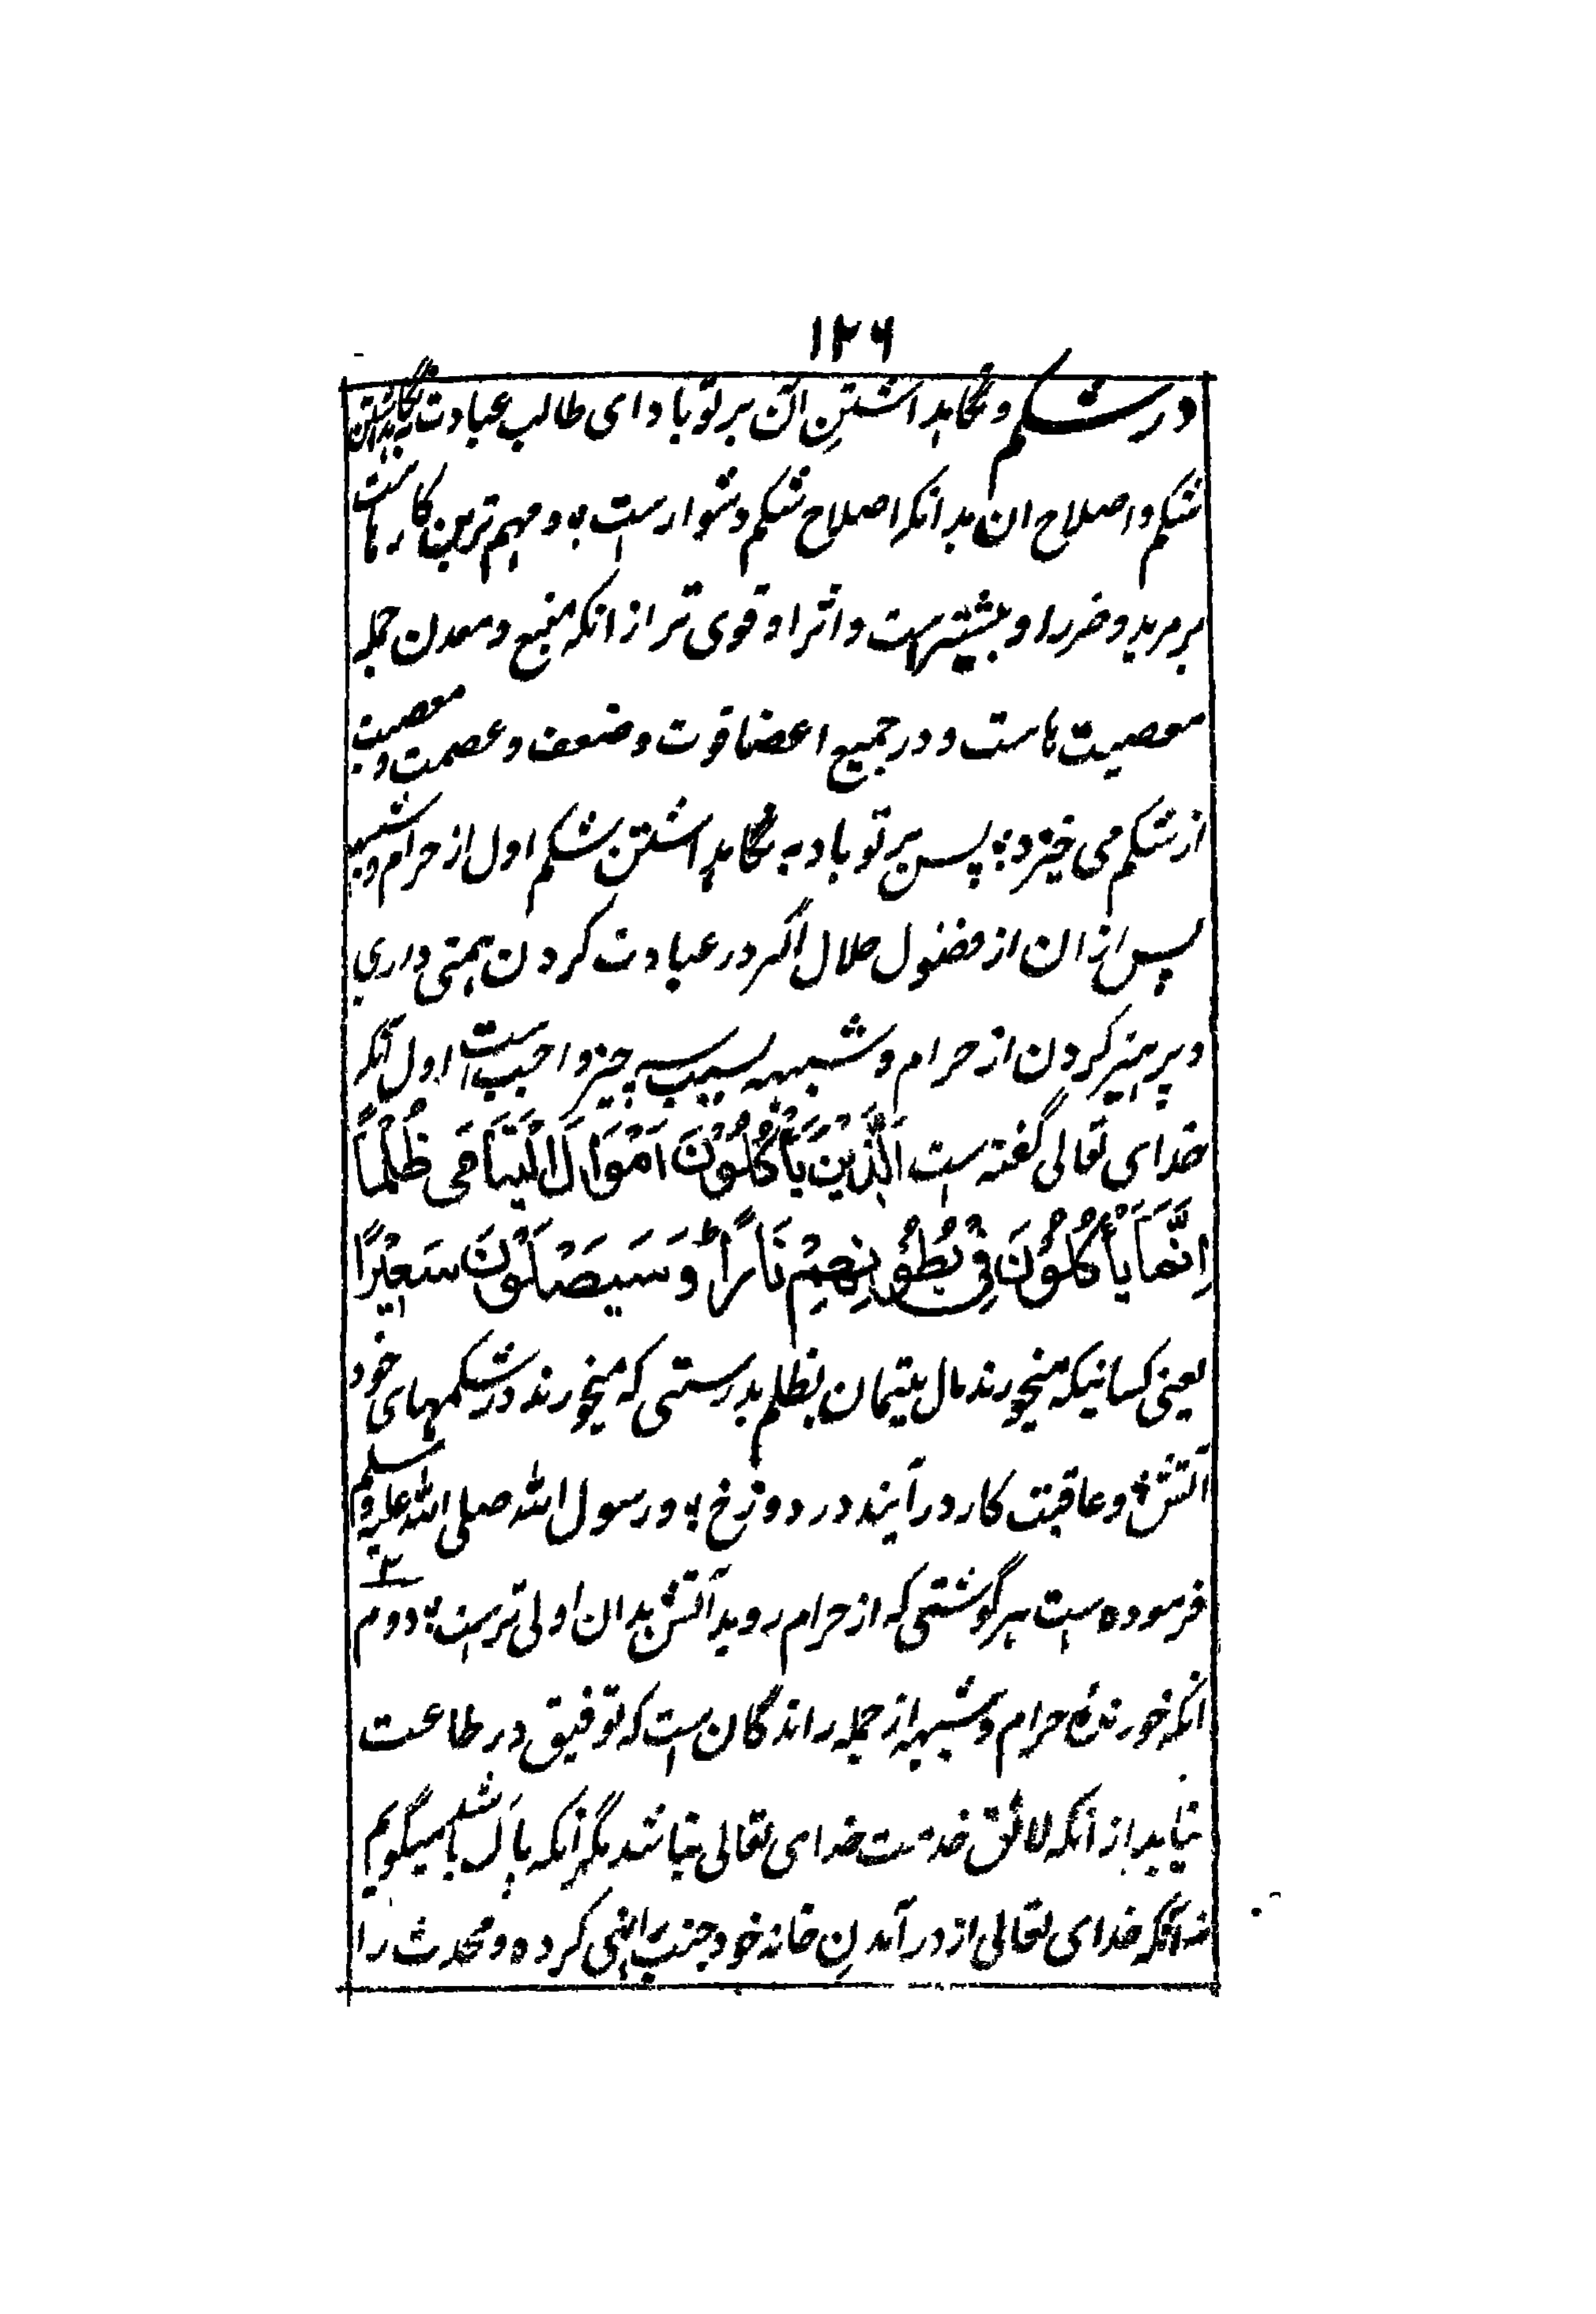 ۱۲۶
در شکم و نگاهداشتنِ ان بر تو باد ای طالب عبادت به نگاهداشتن
شکم و اصلاح ان بدانکه اصلاح شکم دشوارست ؛ و مهم ترین کارهاست
بر مرید و ضرر او بیشترست و اثر او قوی تر از انکه منبع و معدن جمله
معصیت هاست و در جمیع اعضا قوت و ضعف و عصمت و معصیت
از شکم می خیزد ؛ پس بر تو باد به نگاهداشتن شکم اول از حرام و شبهه
پس از ان از فضول حلال اگر در عبادت کردن همتی داری
و پرهیز کردن از حرام و شبهه بسبب سه چیز واجب است اول آنکه
خدای تعالی گفته است اَلَّذِیْنَ یَأْکُلُوْنَ اَمْوَالَ الْیَتَامَی ظُلْمًا
اِنَّمَا یَأْکُلُوْنَ فِیْ بُطُوْنِهِمْ نَارًا ط وَسَیَصْلَوْنَ سَعِیْرًا
یعنی کسانیکه میخورند مال یتیمان بظلم بدرستی که میخورند در شکمهای خود
آتش ؛ و عاقبت کار در آیند در دوزخ ؛ و رسول الله صلی الله علیه و سلم
فرموده است هر گوشتی که از حرام روید آتش بدان اولی ترست ؛ دوم ۲
انکه خورندهٔ حرام و شبهه از جمله راندگان است که توفیق در طاعت
نیابد از آنکه لائق خدمت خدای تعالی نباشد مگر آنکه پاک باشد میگویم
نه آنکه خدای تعالی از در آمدنِ خانه خود جنب را نهی کرده و محدث را